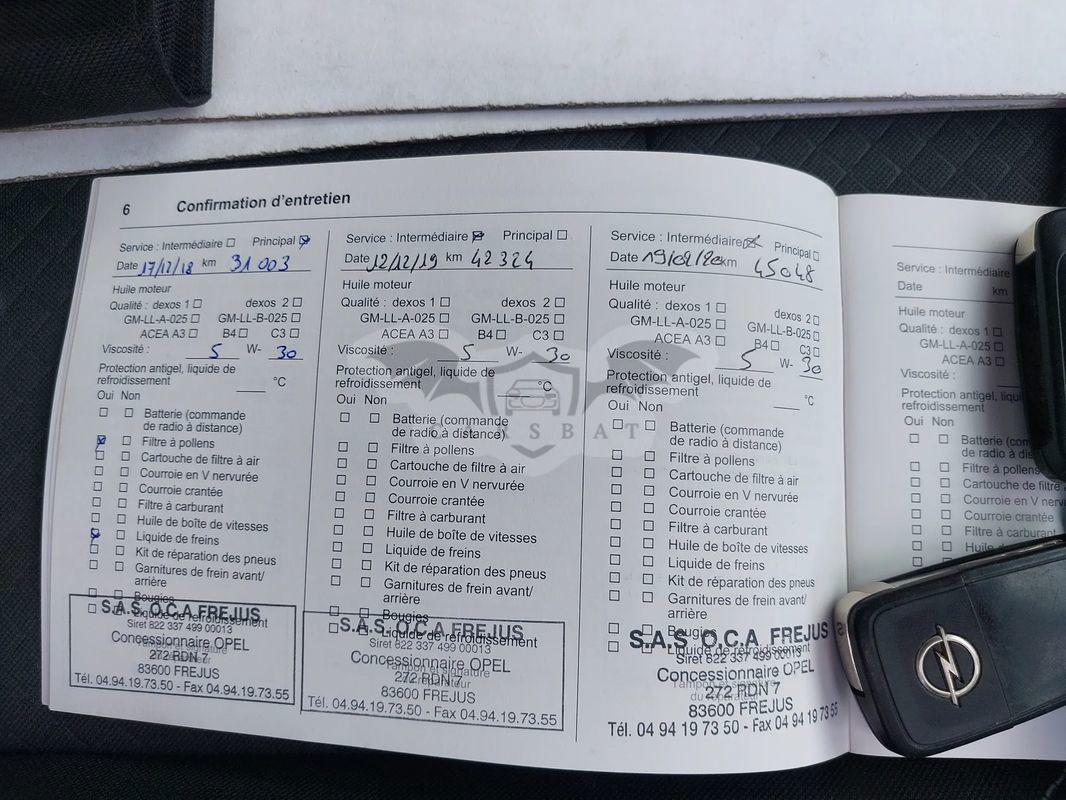 6 Confirmation d'entretien
Service : Intermédiaire ☐ Principal ☑
Date 17/12/18 km 31 003
Huile moteur
Qualité : dexos 1 ☐ dexos 2 ☐
GM-LL-A-025 ☐ GM-LL-B-025 ☐
ACEA A3 ☐ B4 ☐ C3 ☐
Viscosité : 5 W- 30
Protection antigel, liquide de
refroidissement °C
Oui Non
☐ ☐ Batterie (commande
de radio à distance)
☑ ☐ Filtre à pollens
☐ ☐ Cartouche de filtre à air
☐ ☐ Courroie en V nervurée
☐ ☐ Courroie crantée
☐ ☐ Filtre à carburant
☐ ☐ Huile de boîte de vitesses
☑ ☐ Liquide de freins
☐ ☐ Kit de réparation des pneus
☐ ☐ Garnitures de frein avant/
arrière
☐ ☐ Bougies
☐ ☐ Liquide de refroidissement
S.A.S. O.C.A FREJUS
Siret 822 337 499 00013
Concessionnaire OPEL
272 RDN 7
83600 FREJUS
Tél. 04.94.19.73.50 - Fax 04.94.19.73.55
Service : Intermédiaire ☑ Principal ☐
Date 12/12/19 km 42 324
Huile moteur
Qualité : dexos 1 ☐ dexos 2 ☐
GM-LL-A-025 ☐ GM-LL-B-025 ☐
ACEA A3 ☐ B4 ☐ C3 ☐
Viscosité : 5 W- 30
Protection antigel, liquide de
refroidissement °C
Oui Non
☐ ☐ Batterie (commande
de radio à distance)
☐ ☐ Filtre à pollens
☐ ☐ Cartouche de filtre à air
☐ ☐ Courroie en V nervurée
☐ ☐ Courroie crantée
☐ ☐ Filtre à carburant
☐ ☐ Huile de boîte de vitesses
☐ ☐ Liquide de freins
☐ ☐ Kit de réparation des pneus
☐ ☐ Garnitures de frein avant/
arrière
☐ ☐ Bougies
☐ ☐ Liquide de refroidissement
S.A.S. O.C.A FREJUS
Siret 822 337 499 00013
Concessionnaire OPEL
272 RDN 7
83600 FREJUS
Tél. 04.94.19.73.50 - Fax 04.94.19.73.55
Service : Intermédiaire ☑ Principal ☐
Date km 45048
Huile moteur
Qualité : dexos 1 ☐ dexos 2 ☐
GM-LL-A-025 ☐ GM-LL-B-025 ☐
ACEA A3 ☐ B4 ☐ C3 ☐
Viscosité : 5 W- 30
Protection antigel, liquide de
refroidissement °C
Oui Non
☐ ☐ Batterie (commande
de radio à distance)
☐ ☐ Filtre à pollens
☐ ☐ Cartouche de filtre à air
☐ ☐ Courroie en V nervurée
☐ ☐ Courroie crantée
☐ ☐ Filtre à carburant
☐ ☐ Huile de boîte de vitesses
☐ ☐ Liquide de freins
☐ ☐ Kit de réparation des pneus
☐ ☐ Garnitures de frein avant/
arrière
☐ ☐ Bougies
☐ ☐ Liquide de refroidissement
S.A.S. O.C.A FREJUS
Siret 822 337 499 00013
Concessionnaire OPEL
272 RDN 7
83600 FREJUS
Tél. 04 94 19 73 50 - Fax 04 94 19 73 55
Service : Intermédiaire
Date km
Huile moteur
Qualité : dexos 1 ☐
GM-LL-A-025 ☐
ACEA A3 ☐
Viscosité :
Protection antigel,
refroidissement
Oui Non
☐ ☐ Batterie
de radio à
☐ ☐ Filtre à pollens
☐ ☐ Cartouche de filtre
☐ ☐ Courroie en V
☐ ☐ Courroie crantée
☐ ☐ Filtre à carburant
☐ ☐ Huile